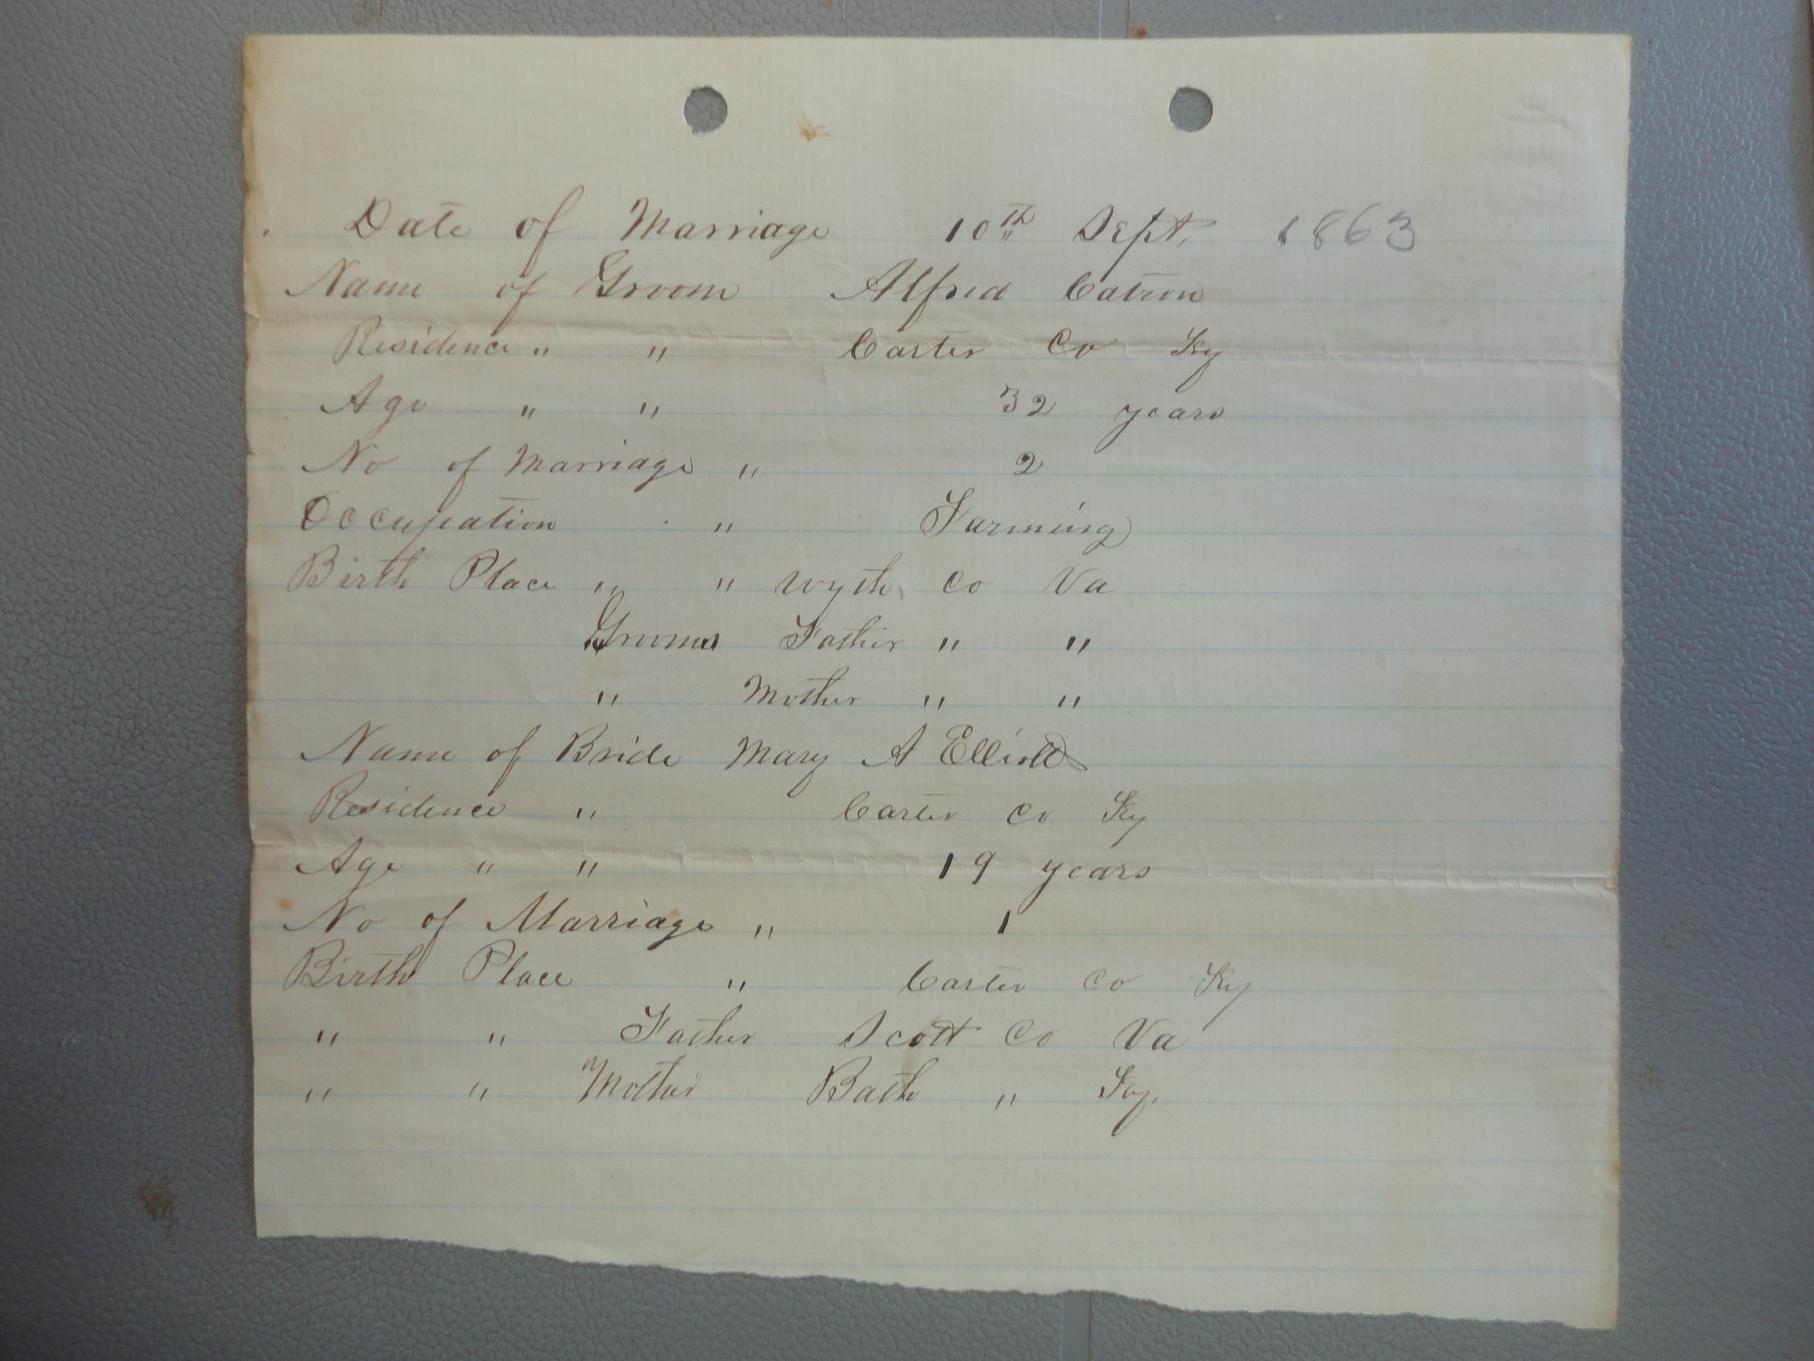 Date of Marriage 10th Sept. 1863
Name of Groom Alfred Catron
Residence " " Carter Co Ky
Age " " 32 years
No of Marriage " 2
Occupation " Farming
Birth Place " " Wyth Co Va
Grooms Father " "
" Mother " "
Name of Bride Mary A Elliott
Residence " Carter Co Ky
Age " " 19 years
No of Marriage " 1
Birth Place " Carter Co Ky
" " Father Scott Co Va
" " Mother Bath " Ky.